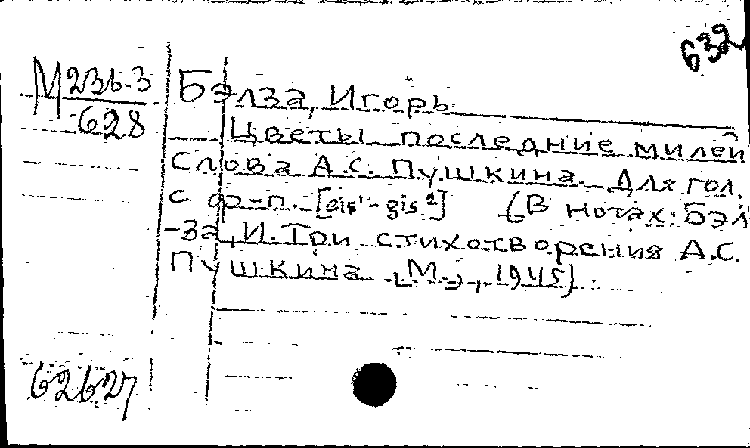 632
М 236-3
628
Бэлза, Игорь
Цветы последние милей
Слова А.С. Пушкина. Для гол.
с ф-п. [eis¹-gis²] (В нотах: Бэл
-за, И. Три стихотворения А.С.
Пушкина. [М.], 1945)
62627